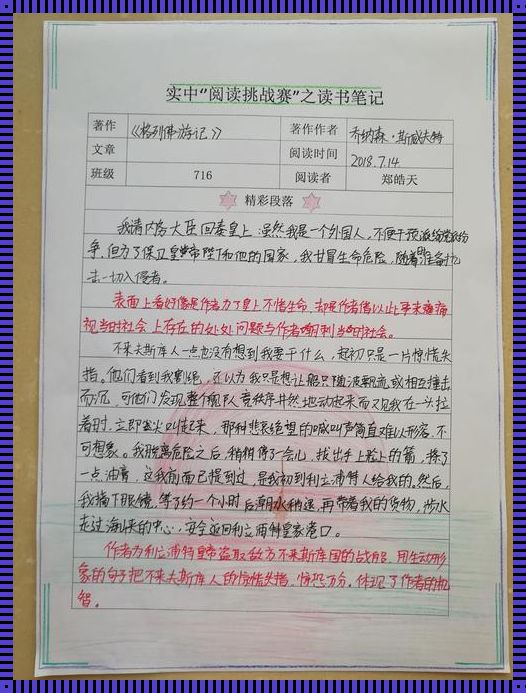 实中“阅读挑战赛”之读书笔记
著作 《格列佛游记》 著作作者 乔纳森·斯威夫特
文章 阅读时间 2018.7.14
班级 716 阅读者 郑皓天
精彩段落
我请内务大臣回奏皇上:虽然我是一个外国人,不便干预派纷
争,但为了保卫皇帝陛下和他的国家,我甘冒生命危险,随时准备抗
击一切入侵者。
表面上看好像是作者为了皇上不惜生命,却是作者借以此事来
视当时社会上存在的处处问题与作者嘲刺当时社会。
不来夫斯库人一点也没有想到我要干什么,起初只是一片惊慌失
措。他们看到我割缆,还以为我只是想让船只随波飘流或相互撞击
而沉,可他们发现整个舰队竟秩序井然地动起来而又见我在一头拉
着时,立即尖叫起来,那种悲哀绝望的喊叫声简直难以形容,不
可想象。我脱离危险之后,稍稍停了会儿,拔出手上脸上的箭,搽了
一点油膏,这我前面已提到过,是我初到利立浦特人给我的。然后,
我摘下眼镜,等了约一个小时后潮水稍退,再带着我的货物,涉水
走过海峡的中心,安全返回利立浦特皇家港口。
作者为利立浦特皇帝盗取敌方不来斯库国的战舰,用生动形
象的句子把不来夫斯库人的惊慌失措,惊恐万分,体现了作者的机
智。